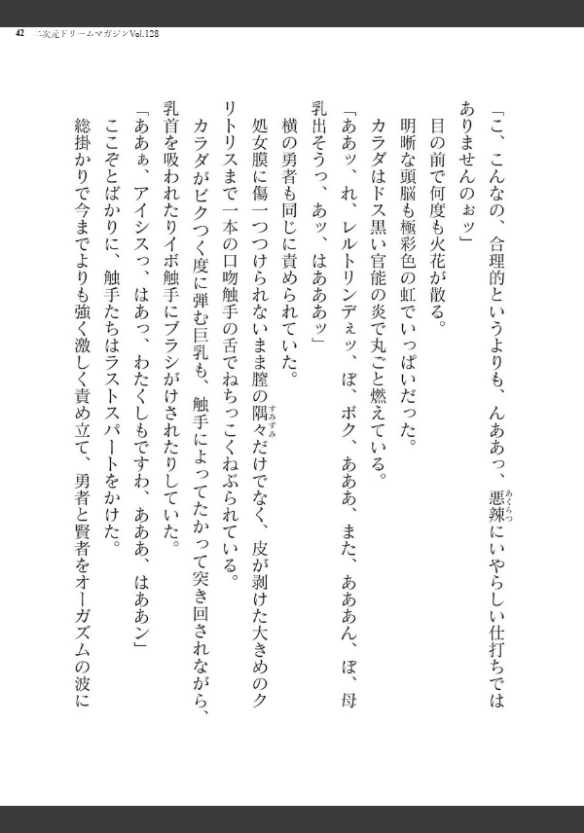 42 二次元ドリームマガジンVol.128
「こ、こんなの、合理的というよりも、んああっ、悪辣にいやらしい仕打ちでは
あくらつ
ありませんのぉッ」
目の前で何度も火花が散る。
明晰な頭脳も極彩色の虹でいっぱいだった。
カラダはドス黒い官能の炎で丸ごと燃えている。
「ああッ、れ、レルトリンデぇッ、ぼ、ボク、あああ、また、あああん、ぼ、母
乳出そうっ、あッ、はあああッ」
横の勇者も同じに責められていた。
処女膜に傷一つつけられないまま膣の隅々だけでなく、皮が剥けた大きめのク
すみずみ
リトリスまで一本の口吻触手の舌でねちっこくねぶられている。
カラダがビクつく度に弾む巨乳も、触手によってたかって突き回されながら、
乳首を吸われたりイボ触手にブラシがけされたりしていた。
「あぁぁ、アイシスっ、はあっ、わたくしもですわ、あああ、はああン」
ここぞとばかりに、触手たちはラストスパートをかけた。
総掛かりで今までよりも強く激しく責め立て、勇者と賢者をオーガズムの波に